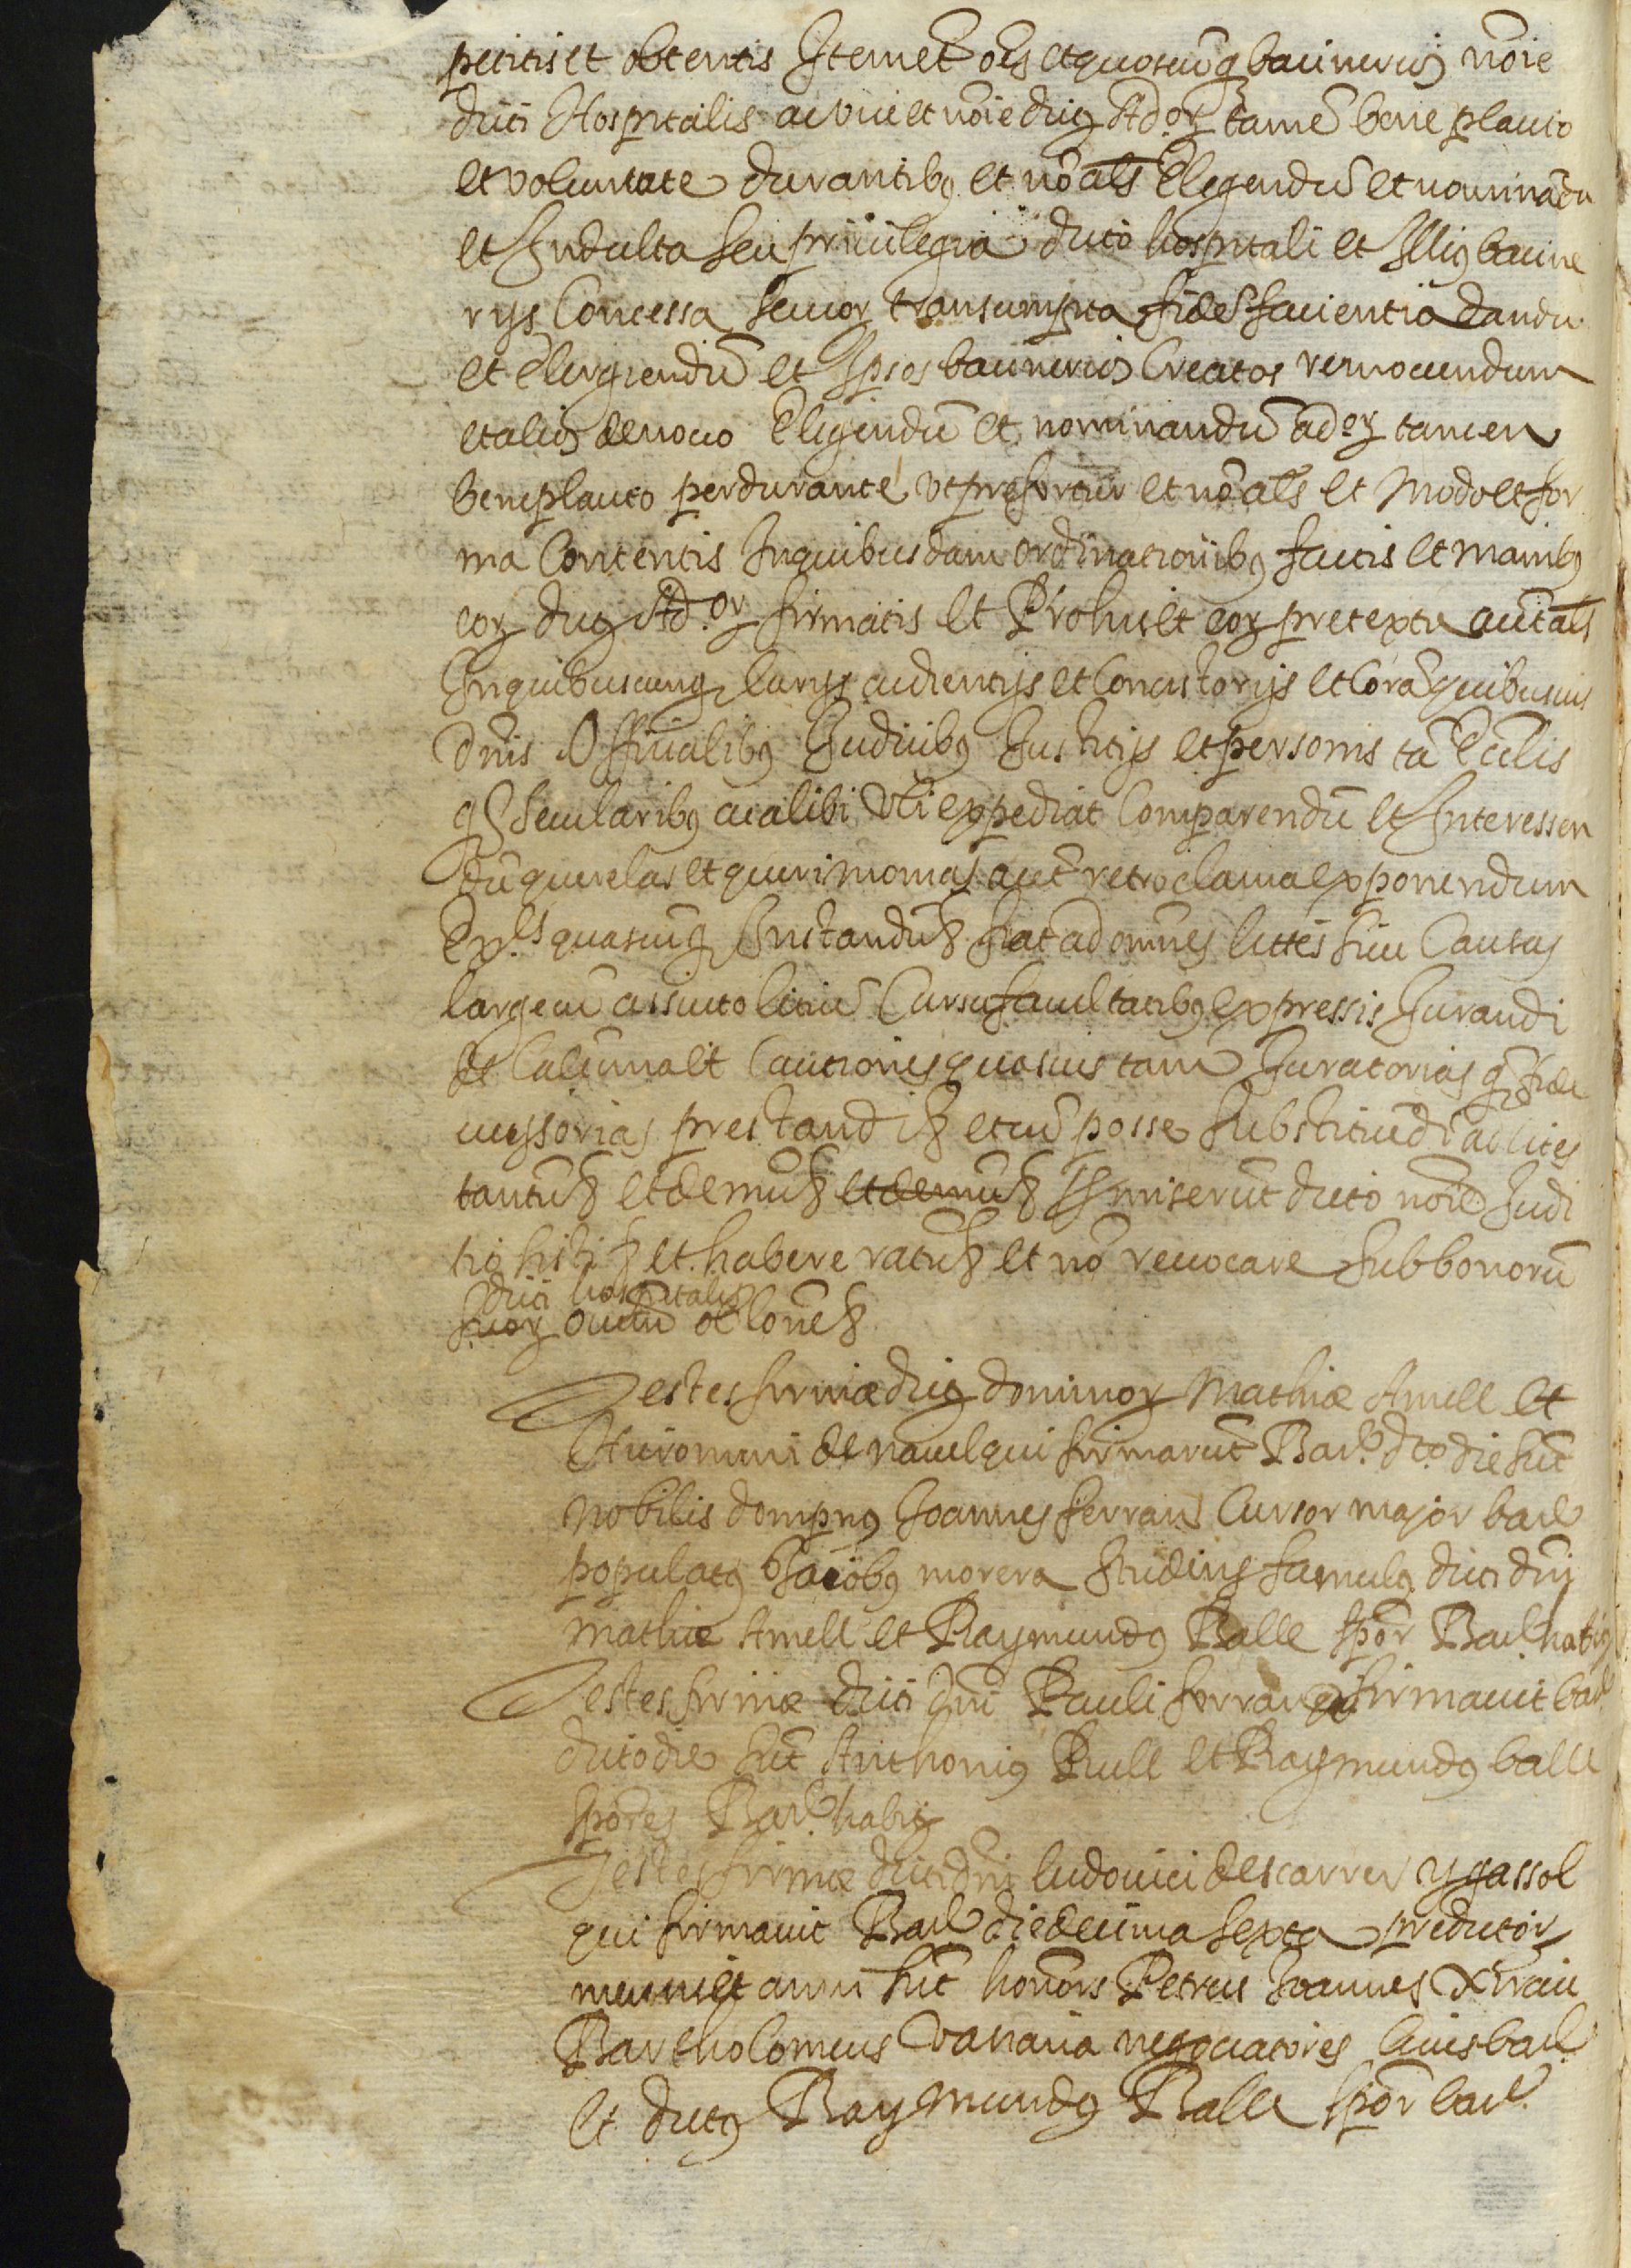 petitis et obtentis Itemet oẽs et quoscũq bacinerios nõie
dicti Hospitalis ac vice et nõie dict Ad.or tamẽ bene placito
et voluntate durantibꝰ et nõ als Eligendũ et nominãdũ
et Indulta seu privilegia dicto hospitali et Illiꝰ bacine
rijs Concessa seu eor transumpta fidẽ facientia dandũ
et elargiendũ et Ipsos bacinerios Creatos removendum
et alios de novo Eligendũ et nominandũ ad.or tamen
beneplacito perdurante ut prefertur et nõ als et Modo et for
ma Contentis In quibusdam ordinationibꝰ factis et manibꝰ
eor dict Ad.or firmatis Et Pro his et eor pretextu aut als
In quibuscunq curijs audientijs et Concistorijs et Corã quibusvis
Dnis Officialibꝰ Iudicibꝰ Iusticijs et personis tã Ecclis
q̃ Secularibꝰ ac alibi Ubi expediat Comparendũ et Interessen
dũ querelas et querimonias aut retroclama exponendum
Exñs quascũq Instandũ &. fiat ad omnes littes sive Causas
large cũ assueto litiũ Cursu facultatibꝰ expressis Iurandi
de Calũnia et Cautiones quasvis tam Iuratorias q̃ fide
iussorias prestandi &. et cũ posse substituẽdi ad lites
tantũ &. et demũ &. et demũ &. Promiserũt dicto nõie Judi
tio sisti &. et habere ratũ &. et nõ revocare sub bonorũ
dicti hospitalis
suor omniũ oblone &.
Testes firmæ dict dominor Mathiæ Amell et
Hieronimi de navel qui firmarũt Bar.e dto die sũt
nobilis dompnꝰ Joannes ferran Cursor major bare
populatꝰ Jacobꝰ morera studẽs famulꝰ dicti dni
Mathie Amell et Raymundꝰ Balle sp̃or Bare habit
Testes firmæ dicti dni Pauli ferran qui firmavit bar.e
dicto die sũt Anthoniꝰ Rull et Raymundꝰ balle
sp̃ores Bar.e habit
Testes firmæ dicti dni ludovici descarrer y gassol
qui firmavit Bare die decima sexta predictor
mensis et anni sũt honors Petrus Joannes
Bartholomeus negociatores Cives bare
et dictꝰ Raymundꝰ Balle sp̃or bare